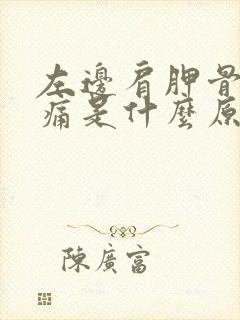 左邊肩胛骨
痛是什麼原
陳廣富